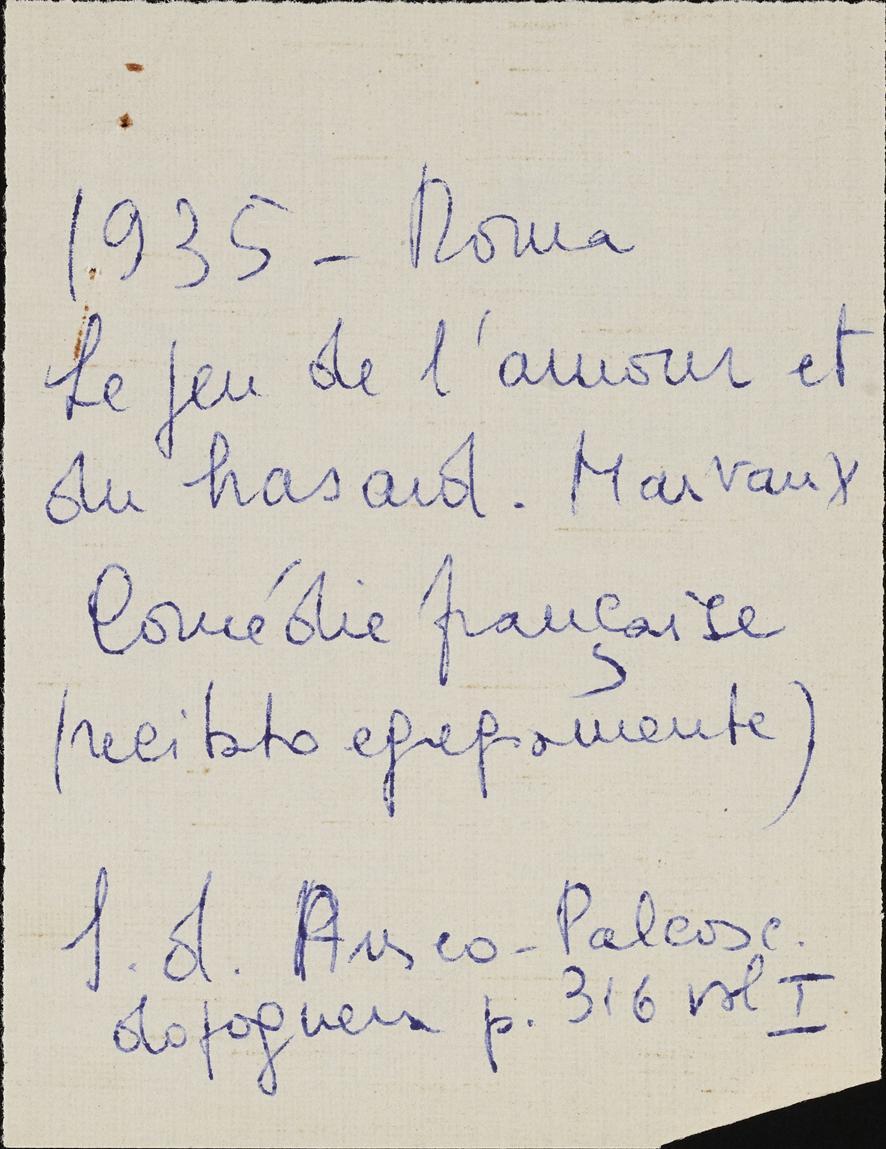 1935 - Roma
Le jeu de l'amour et
du hasard. Marvaux
Comédie française
(recitato egregiamente)
S. d. Ausco-Palcosc.
dopoguerra p. 316 vol I